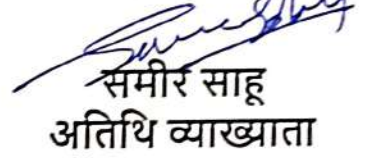 समीर साहू
अतिथि व्याख्याता